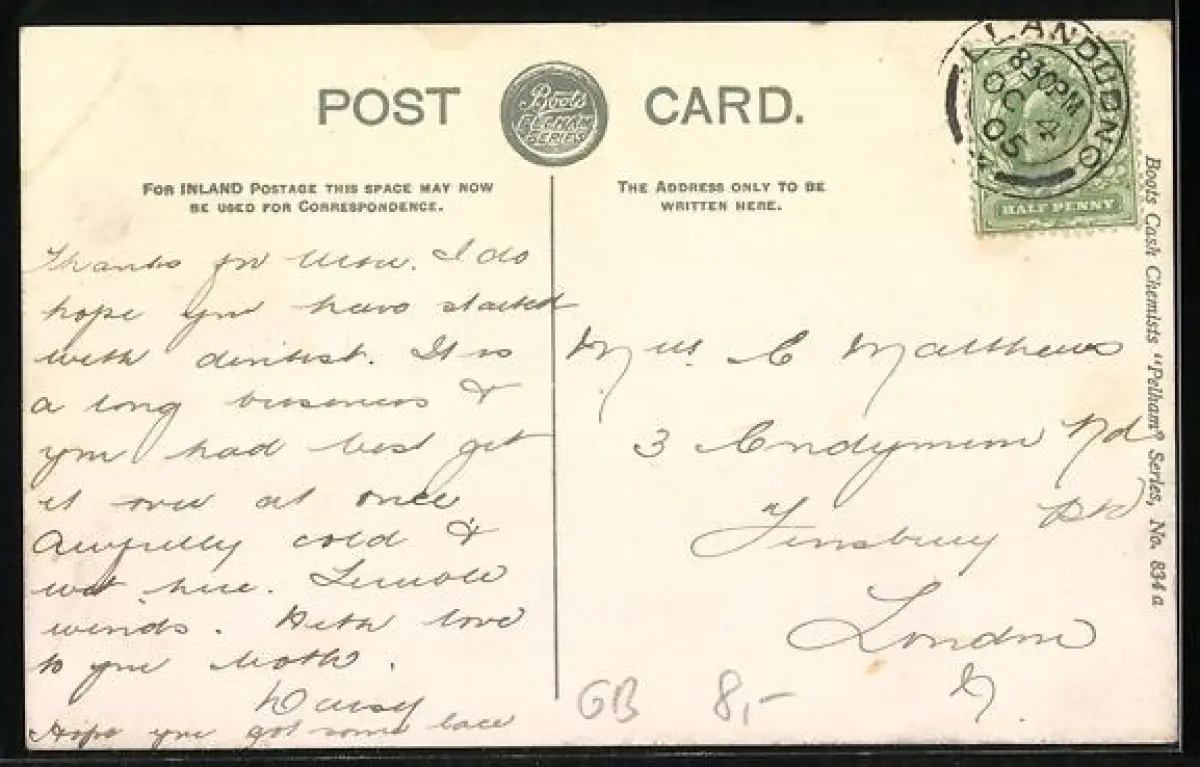 POST CARD.
Boots
PELHAM
SERIES
FOR INLAND POSTAGE THIS SPACE MAY NOW
BE USED FOR CORRESPONDENCE.
THE ADDRESS ONLY TO BE
WRITTEN HERE.
LLANDUDNO
8 30PM
OC 4
05
HALF PENNY
Thanks for . I do
hope you have started
with dentist. It is
a long business &
you had best get
it over at once
Awfully cold &
wet here.
winds. With love
to you both.
Daisy
Hope you got some lace
C Matthews
3 Endymion Rd
Finsbury Pk
London
N.
GB 8,-
Boots Cash Chemists "Pelham" Series, No. 834 a